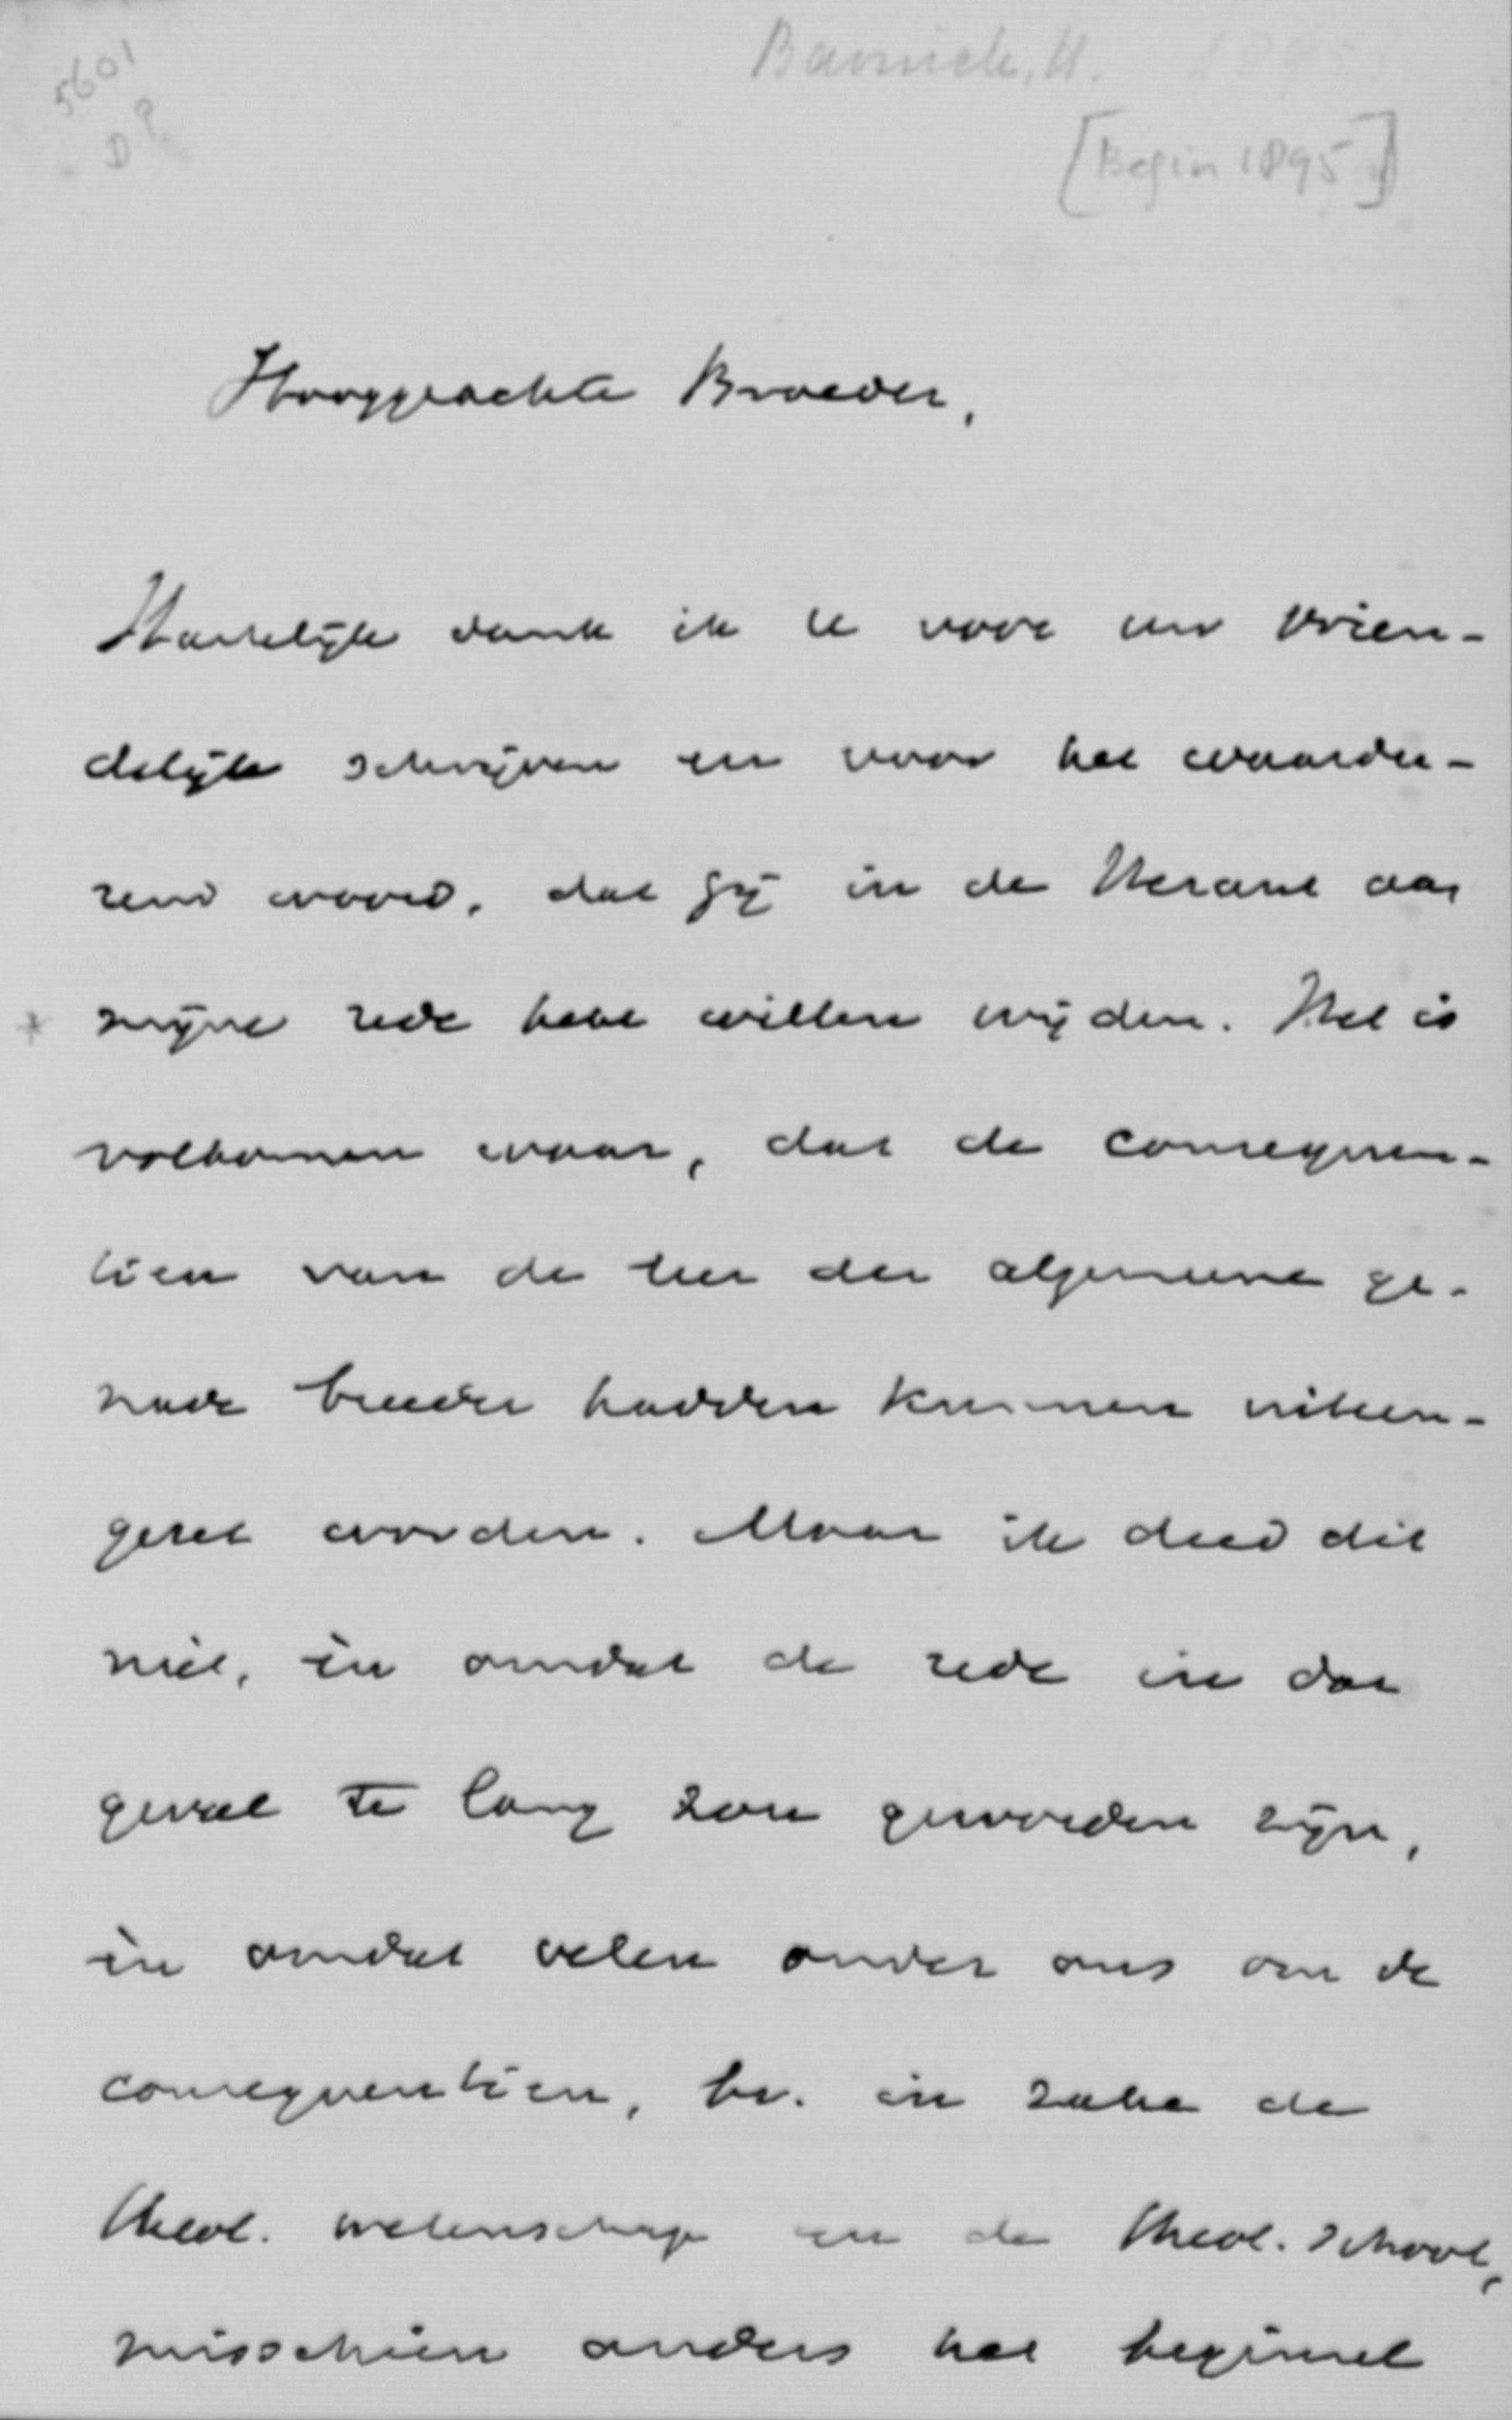 5601
D?
Bavinck, H.
[Begin 1895]
Hooggeachte Broeder,
Hartelijk dank ik U voor uw vrien-
delijk schrijven en voor het waardee-
rend woord, dat gij in de Heraut aan
mijne rede hebt willen wijden. Het is
volkomen waar, dat de consequen-
tien van de leer der algemeene ge-
nade breeder hadden kunnen uiteen-
gezet worden. Maar ik deed dit
niet, èn omdat de rede in dat
geval te lang zou geworden zijn,
èn omdat velen onder ons om de
consequentien, bv. in zake de
theol. wetenschap en de theol. school,
misschien anders het beginsel